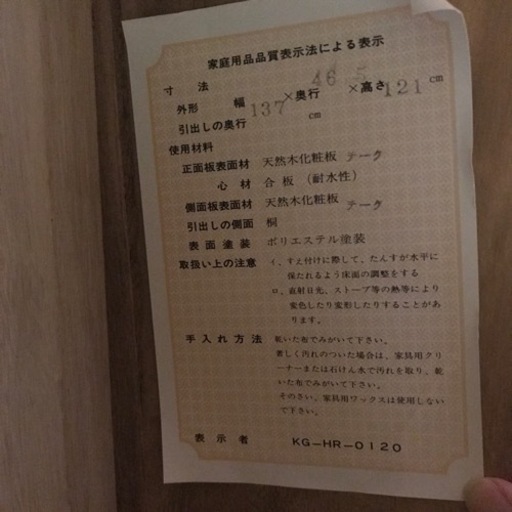 家庭用品品質表示法による表示
寸法
外形 幅 137 ×奥行 46.5 ×高さ 121 cm
引出しの奥行 cm
使用材料
正面板表面材 天然木化粧板 チーク
心材 合板(耐水性)
側面板表面材 天然木化粧板 チーク
引出しの側面 桐
表面塗装 ポリエステル塗装
取扱い上の注意 イ、すえ付けに際して、たんすが水平に
保たれるよう床面の調整をする
ロ、直射日光、ストーブ等の熱等により
変色したり変形したりすることがあ
ります。
手入れ方法 乾いた布でみがいて下さい。
著しく汚れのついた場合は、家具用クリ
ーナーまたは石けん水で汚れを取り、乾
いた布でみがいて下さい。
そのさい、家具用ワックスは使用しない
で下さい。
表示者 KG-HR-0120